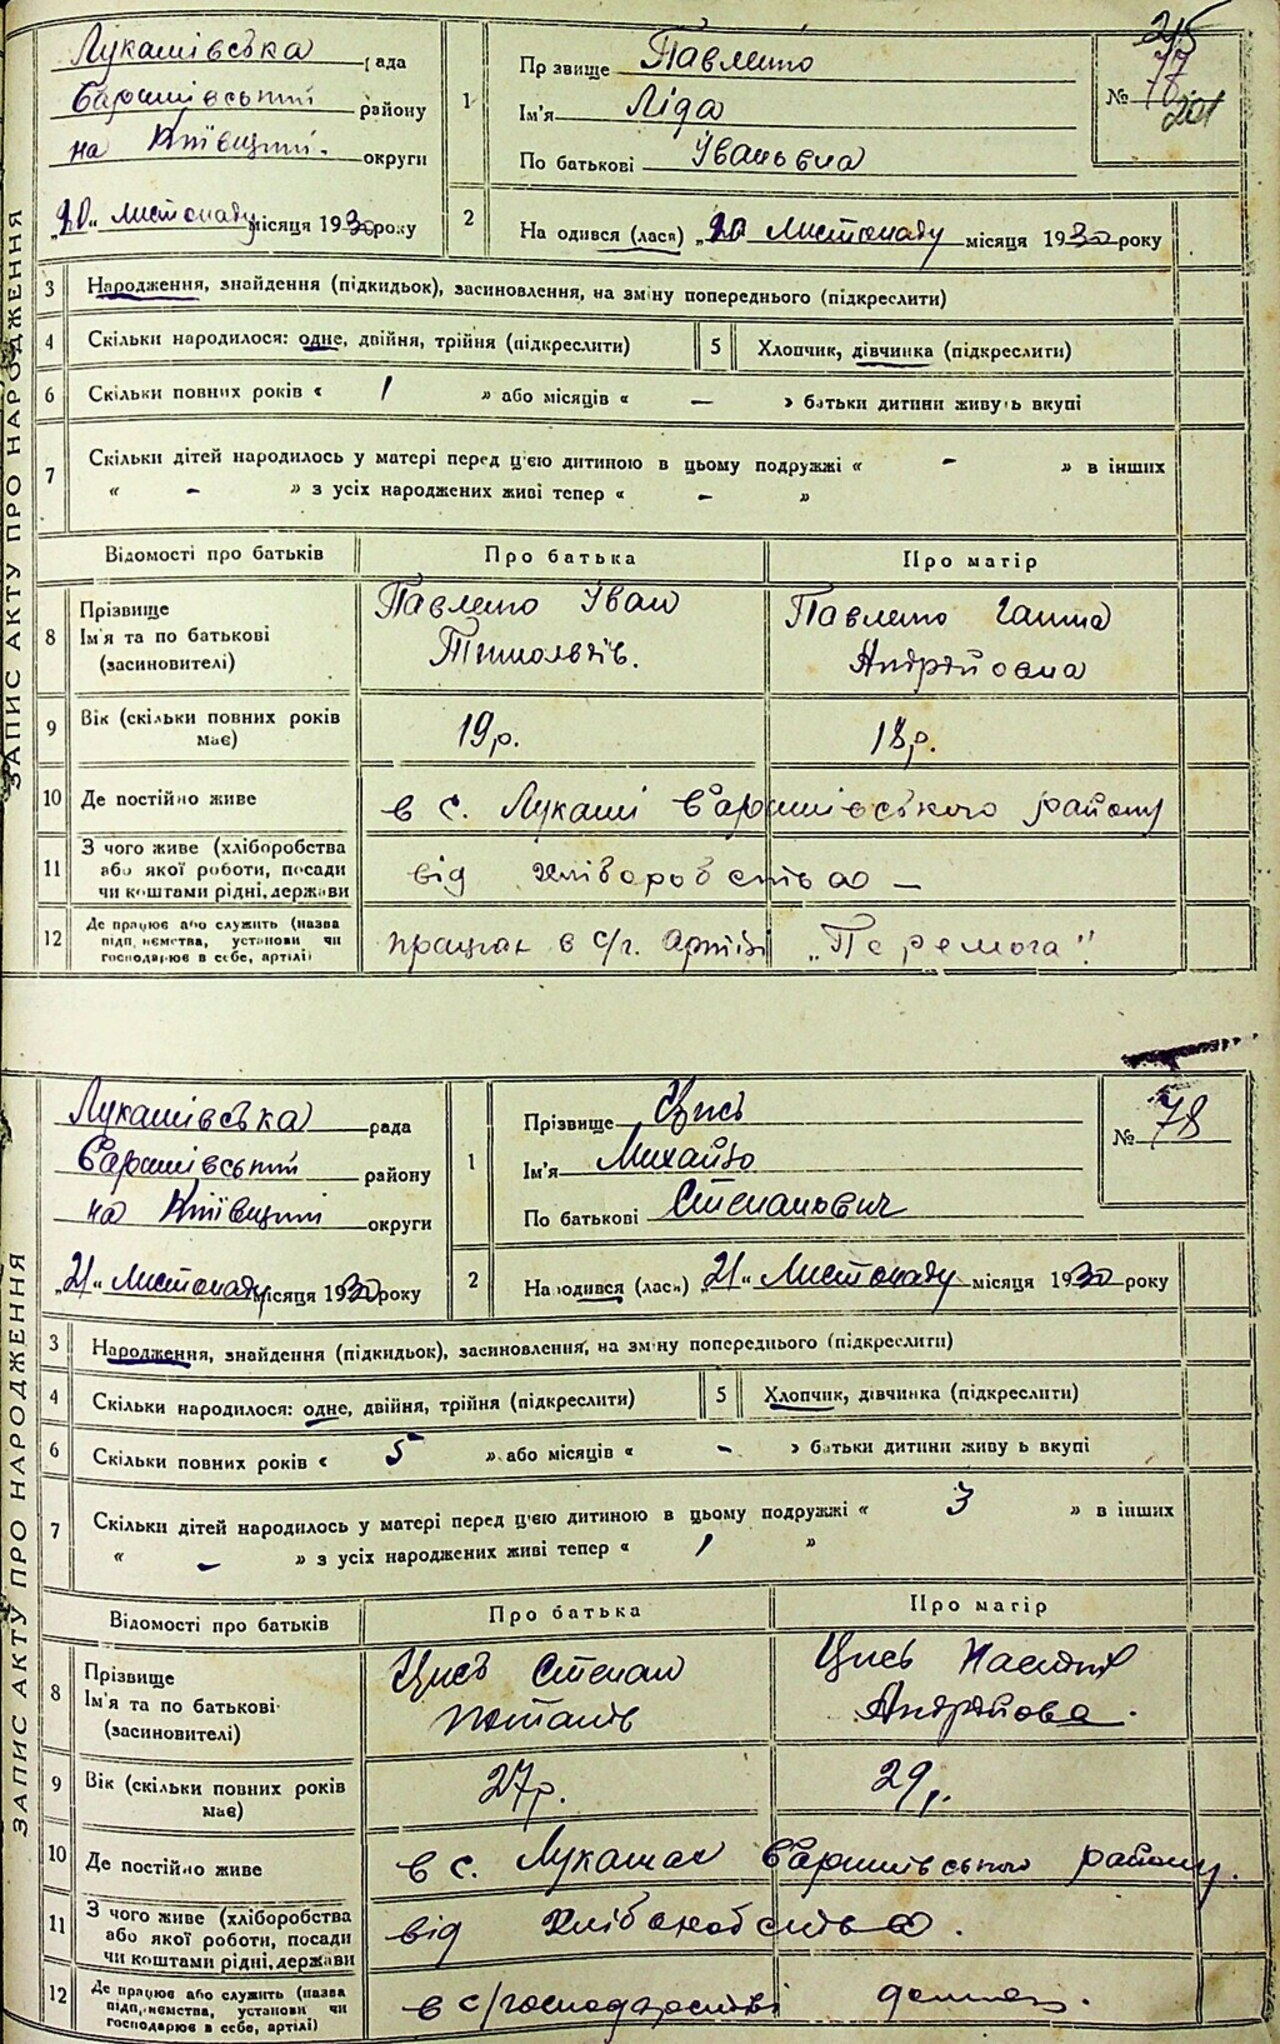 ЗАПИС АКТУ ПРО НАРОДЖЕННЯ
Лукашівська рада
Баришівський району
на Київщині округи
"20" листопаду місяця 1930 року
1
Прізвище Павленко
Ім'я Ліда
По батькові Іваньвна
№ 77
215
201
2
Народився (лася) "20" Листопаду місяця 1930 року
3 Народження, знайдення (підкидьок), засиновлення, на зміну попереднього (підкреслити)
4 Скільки народилося: одне, двійня, трійня (підкреслити)
5 Хлопчик, дівчинка (підкреслити)
6 Скільки повних років « 1 » або місяців « — » батьки дитини живуть вкупі
7 Скільки дітей народилось у матері перед ц'єю дитиною в цьому подружжі « - » в інших
« - » з усіх народжених живі тепер « - »
Відомості про батьків Про батька Про матір
8 Прізвище
Ім'я та по батькові
(засиновителі)
Павленко Іван
Павленко Ганна
Андрійовна
9 Вік (скільки повних років має) 19р. 18р.
10 Де постійно живе в с. Лукаші Баришівського району
11 З чого живе (хліборобства
або якої роботи, посади
чи коштами рідні, держави
від хліборобства —
12 Де працює або служить (назва
підприємства, установи чи
господарює в себе, артілі)
працює в с/г. артілі „Перемога".
ЗАПИС АКТУ ПРО НАРОДЖЕННЯ
Лукашівська рада
Баришівський району
на Київщині округи
"21" Листопаду місяця 1930 року
1
Прізвище Цись
Ім'я Михайло
По батькові Степанович
№ 78
2
Народився (лася) "21" Листопаду місяця 1930 року
3 Народження, знайдення (підкидьок), засиновлення, на зміну попереднього (підкреслити)
4 Скільки народилося: одне, двійня, трійня (підкреслити)
5 Хлопчик, дівчинка (підкреслити)
6 Скільки повних років « 5 » або місяців « - » батьки дитини живуть вкупі
7 Скільки дітей народилось у матері перед ц'єю дитиною в цьому подружжі « 3 » в інших
« - » з усіх народжених живі тепер « 1 »
Відомості про батьків Про батька Про матір
8 Прізвище
Ім'я та по батькові
(засиновителі)
Цись Степан
Потапів
Цись Настя
Андрійова.
9 Вік (скільки повних років має) 27р. 29р.
10 Де постійно живе в с. Лукашах Баришівського району.
11 З чого живе (хліборобства
або якої роботи, посади
чи коштами рідні, держави
від хліборобства.
12 Де працює або служить (назва
підприємства, установи чи
господарює в себе, артілі)
в с/господарстві